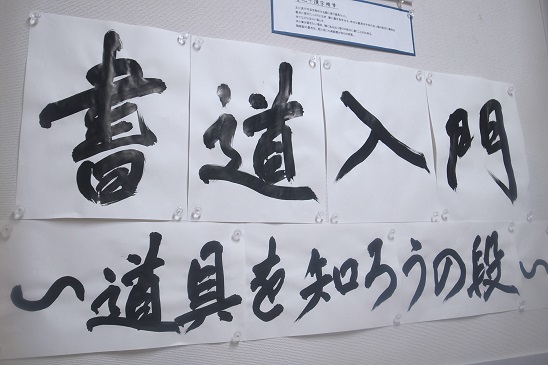 書道入門
〜道具を知ろうの段〜